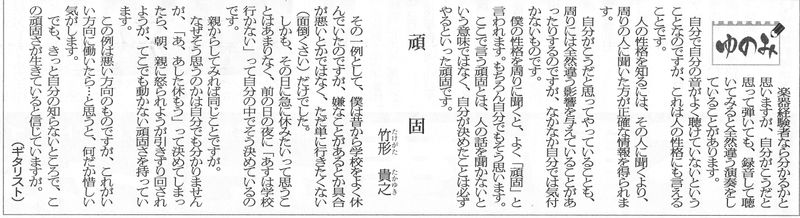 ゆのみ
楽器経験者なら分かるかと
思いますが、自分がこうだと
思って弾いても、録音して聴
いてみると全然違う演奏をし
ていることがあります。
自分で自分の音がよく聴けていないという
ことなのですが、これは人の性格にも言える
ことです。
人の性格を知るには、その人に聞くより、
周りの人に聞いた方が正確な情報を得られま
す。
自分がこうだと思ってやっていることも、
周りには全然違う影響を与えていることがあ
ったりするのですが、なかなか自分では気付
かないものです。
僕の性格を周りに聞くと、よく「頑固」と
言われます。もちろん自分でもそう思います。
ここで言う頑固とは、人の話を聞かないと
いう意味ではなく、自分が決めたことは必ず
やるといった頑固です。
頑固
竹形 貴之
たけがた たかゆき
その一例として、僕は昔から学校をよく休
んでいたのですが、嫌なことがあるとか具合
が悪いとかではなく、ただ単に行きたくない
(面倒くさい)だけでした。
しかも、その日に急に休みたいって思うこ
とはあまりなく、前の日の夜に「あすは学校
行かない」って自分の中でそう決めているの
です。
親からしてみれば同じことですが。
なぜそう思うのかは自分でも分かりません
が、「あ、あした休もう」って決めてしまっ
たら、朝、親に怒られようが引きずり回され
ようが、てこでも動かない頑固さを持ってい
ます。
この例は悪い方向のものですが、これがい
い方向に働いたら…と思うと、何だか惜しい
気がします。
でも、きっと自分の知らないところで、こ
の頑固さが生きていると信じていますが。
(ギタリスト)